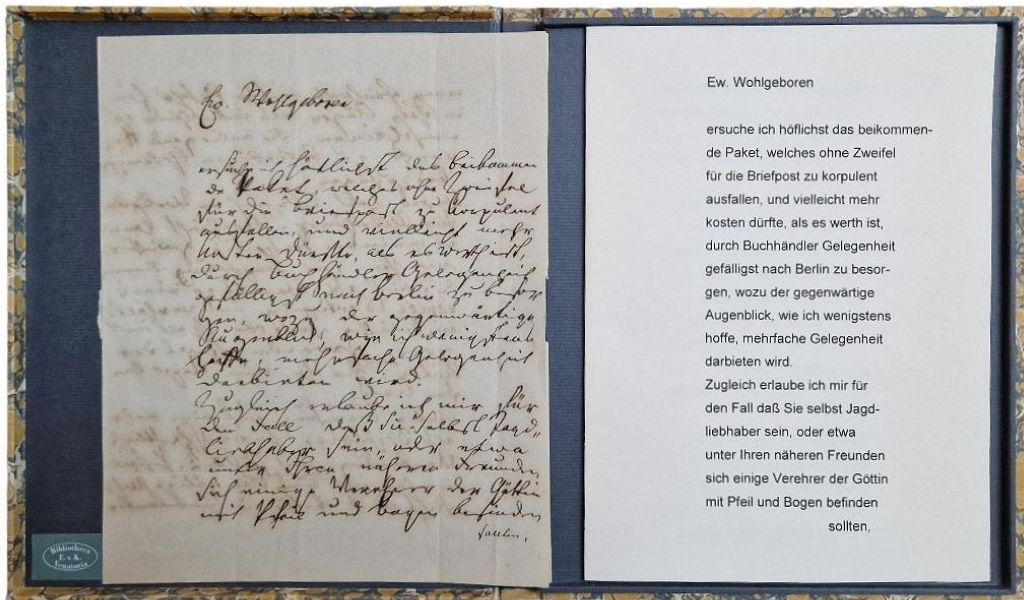 Ew. Wohlgeboren
ersuche ich höflichst das beikommen
de Paket, welches ohne Zweifel
für die Briefpost zu korpulent
ausfallen, und vielleicht mehr
kosten dürfte, als es werth ist,
durch Buchhändler Gelegenheit
gefälligst nach Berlin zu besor
gen, wozu der gegenwärtige
Augenblick, wie ich wenigstens
hoffe, mehrfache Gelegenheit
darbieten wird.
Zugleich erlaube ich mir für
den Fall daß Sie selbst Jagd„
liebhaber sein, oder etwa
unter Ihren näheren Freunden
sich einige Verehrer der Göttin
mit Pfeil und Bogen befinden
sollten,
Bibliotheca
E. v. K.
Venatoria
Ew. Wohlgeboren
ersuche ich höflichst das beikommen-
de Paket, welches ohne Zweifel
für die Briefpost zu korpulent
ausfallen, und vielleicht mehr
kosten dürfte, als es werth ist,
durch Buchhändler Gelegenheit
gefälligst nach Berlin zu besor-
gen, wozu der gegenwärtige
Augenblick, wie ich wenigstens
hoffe, mehrfache Gelegenheit
darbieten wird.
Zugleich erlaube ich mir für
den Fall daß Sie selbst Jagd-
liebhaber sein, oder etwa
unter Ihren näheren Freunden
sich einige Verehrer der Göttin
mit Pfeil und Bogen befinden
sollten,